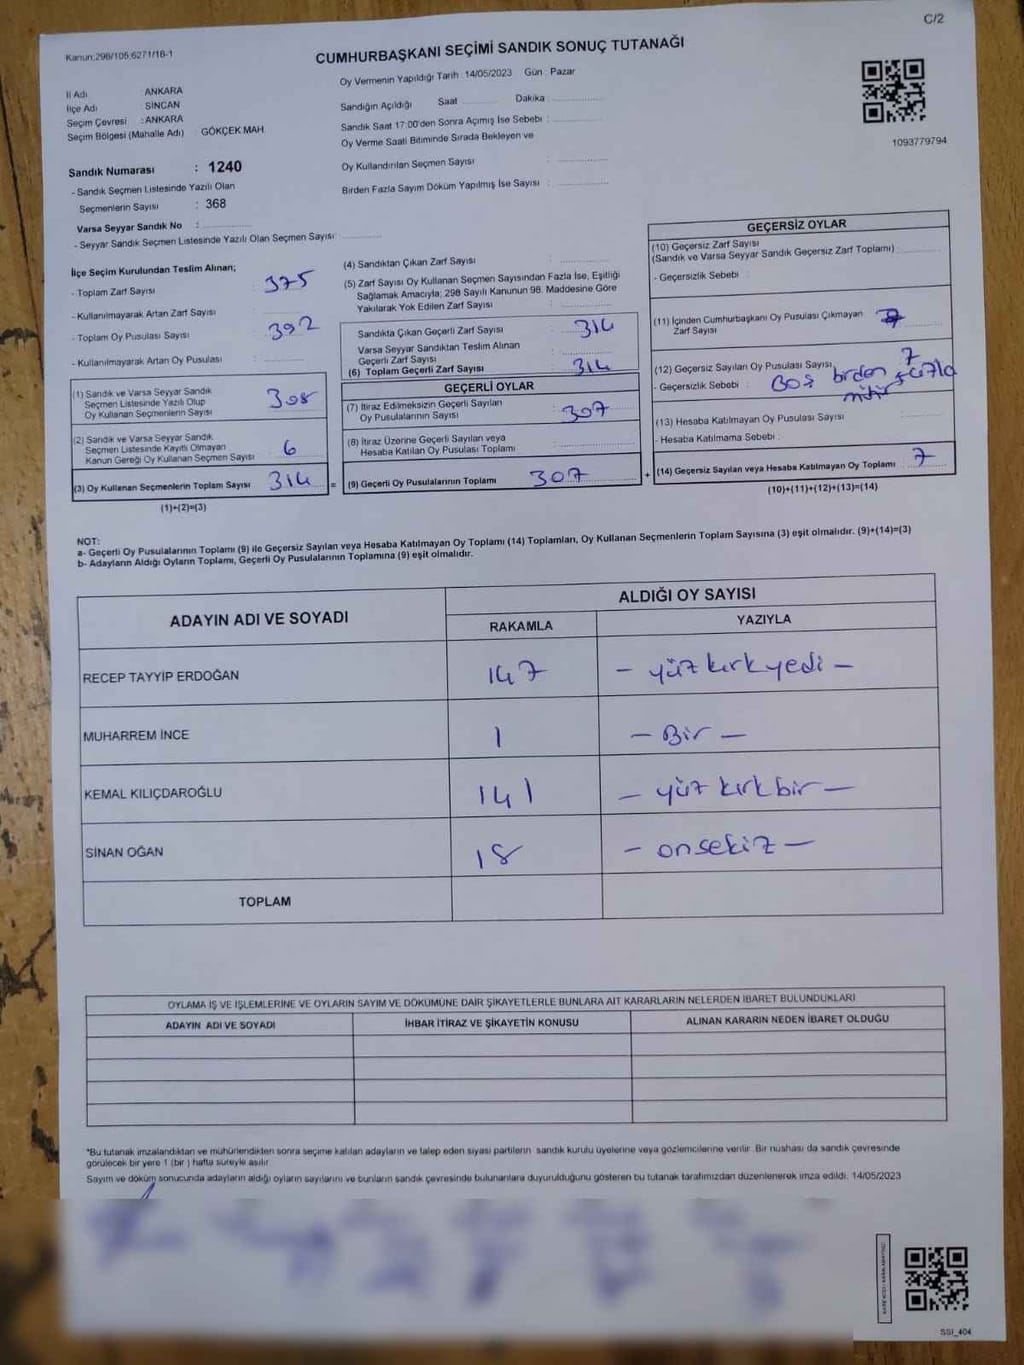 C/2
Kanun:298/105;6271/18-1
CUMHURBAŞKANI SEÇİMİ SANDIK SONUÇ TUTANAĞI
Oy Vermenin Yapıldığı Tarih 14/05/2023 Gün : Pazar
İl Adı ANKARA
İlçe Adı SİNCAN
Seçim Çevresi : ANKARA
Seçim Bölgesi (Mahalle Adı) : GÖKÇEK MAH.
Sandığın Açıldığı Saat Dakika
Sandık Saat 17:00'den Sonra Açımış İse Sebebi :
Oy Verme Saati Bitiminde Sırada Bekleyen ve
Oy Kullandırılan Seçmen Sayısı
Birden Fazla Sayım Döküm Yapılmış İse Sayısı :
1093779794
Sandık Numarası : 1240
- Sandık Seçmen Listesinde Yazılı Olan
Seçmenlerin Sayısı : 368
Varsa Seyyar Sandık No :
- Seyyar Sandık Seçmen Listesinde Yazılı Olan Seçmen Sayısı:
İlçe Seçim Kurulundan Teslim Alınan;
- Toplam Zarf Sayısı : 375
- Kullanılmayarak Artan Zarf Sayısı :
- Toplam Oy Pusulası Sayısı : 392
- Kullanılmayarak Artan Oy Pusulası :
(1) Sandık ve Varsa Seyyar Sandık
Seçmen Listesinde Yazılı Olup
Oy Kullanan Seçmenlerin Sayısı 308
(2) Sandık ve Varsa Seyyar Sandık
Seçmen Listesinde Kayıtlı Olmayan
Kanun Gereği Oy Kullanan Seçmen Sayısı 6
(3) Oy Kullanan Seçmenlerin Toplam Sayısı 314 =
(1)+(2)=(3)
(4) Sandıktan Çıkan Zarf Sayısı :
(5) Zarf Sayısı Oy Kullanan Seçmen Sayısından Fazla İse, Eşitliği
Sağlamak Amacıyla; 298 Sayılı Kanunun 98. Maddesine Göre
Yakılarak Yok Edilen Zarf Sayısı :
Sandıkta Çıkan Geçerli Zarf Sayısı : 314
Varsa Seyyar Sandıktan Teslim Alınan
Geçerli Zarf Sayısı :
(6) Toplam Geçerli Zarf Sayısı : 314
GEÇERLİ OYLAR
(7) İtiraz Edilmeksizin Geçerli Sayılan
Oy Pusulalarının Sayısı : 307
(8) İtiraz Üzerine Geçerli Sayılan veya
Hesaba Katılan Oy Pusulası Toplamı
(9) Geçerli Oy Pusulalarının Toplamı 307 +
GEÇERSİZ OYLAR
(10) Geçersiz Zarf Sayısı
(Sandık ve Varsa Seyyar Sandık Geçersiz Zarf Toplamı) :
- Geçersizlik Sebebi :
(11) İçinden Cumhurbaşkanı Oy Pusulası Çıkmayan
Zarf Sayısı
(12) Geçersiz Sayılan Oy Pusulası Sayısı 7
- Geçersizlik Sebebi : Boş birden fazla
mühür
(13) Hesaba Katılmayan Oy Pusulası Sayısı :
- Hesaba Katılmama Sebebi :
(14) Geçersiz Sayılan veya Hesaba Katılmayan Oy Toplamı 7
(10)+(11)+(12)+(13)=(14)
NOT:
a- Geçerli Oy Pusulalarının Toplamı (9) ile Geçersiz Sayılan veya Hesaba Katılmayan Oy Toplamı (14) Toplamları, Oy Kullanan Seçmenlerin Toplam Sayısına (3) eşit olmalıdır. (9)+(14)=(3)
b- Adayların Aldığı Oyların Toplamı, Geçerli Oy Pusulalarının Toplamına (9) eşit olmalıdır.
ADAYIN ADI VE SOYADI
ALDIĞI OY SAYISI
RAKAMLA YAZIYLA
RECEP TAYYİP ERDOĞAN 147 – yüz kırk yedi –
MUHARREM İNCE 1 – Bir –
KEMAL KILIÇDAROĞLU 141 – yüz kırk bir –
SİNAN OĞAN 18 – onsekiz –
TOPLAM
OYLAMA İŞ VE İŞLEMLERİNE VE OYLARIN SAYIM VE DÖKÜMÜNE DAİR ŞİKAYETLERLE BUNLARA AİT KARARLARIN NELERDEN İBARET BULUNDUKLARI
ADAYIN ADI VE SOYADI İHBAR İTİRAZ VE ŞİKAYETİN KONUSU ALINAN KARARIN NEDEN İBARET OLDUĞU
*Bu tutanak imzalandıktan ve mühürlendikten sonra seçime katılan adayların ve talep eden siyasi partilerin sandık kurulu üyelerine veya gözlemcilerine verilir. Bir nüshası da sandık çevresinde
görülecek bir yere 1 (bir ) hafta süreyle asılır.
Sayım ve döküm sonucunda adayların aldığı oyların sayılarını ve bunların sandık çevresinde bulunanlara duyurulduğunu gösteren bu tutanak tarafımızdan düzenlenerek imza edildi. 14/05/2023
SSI_404